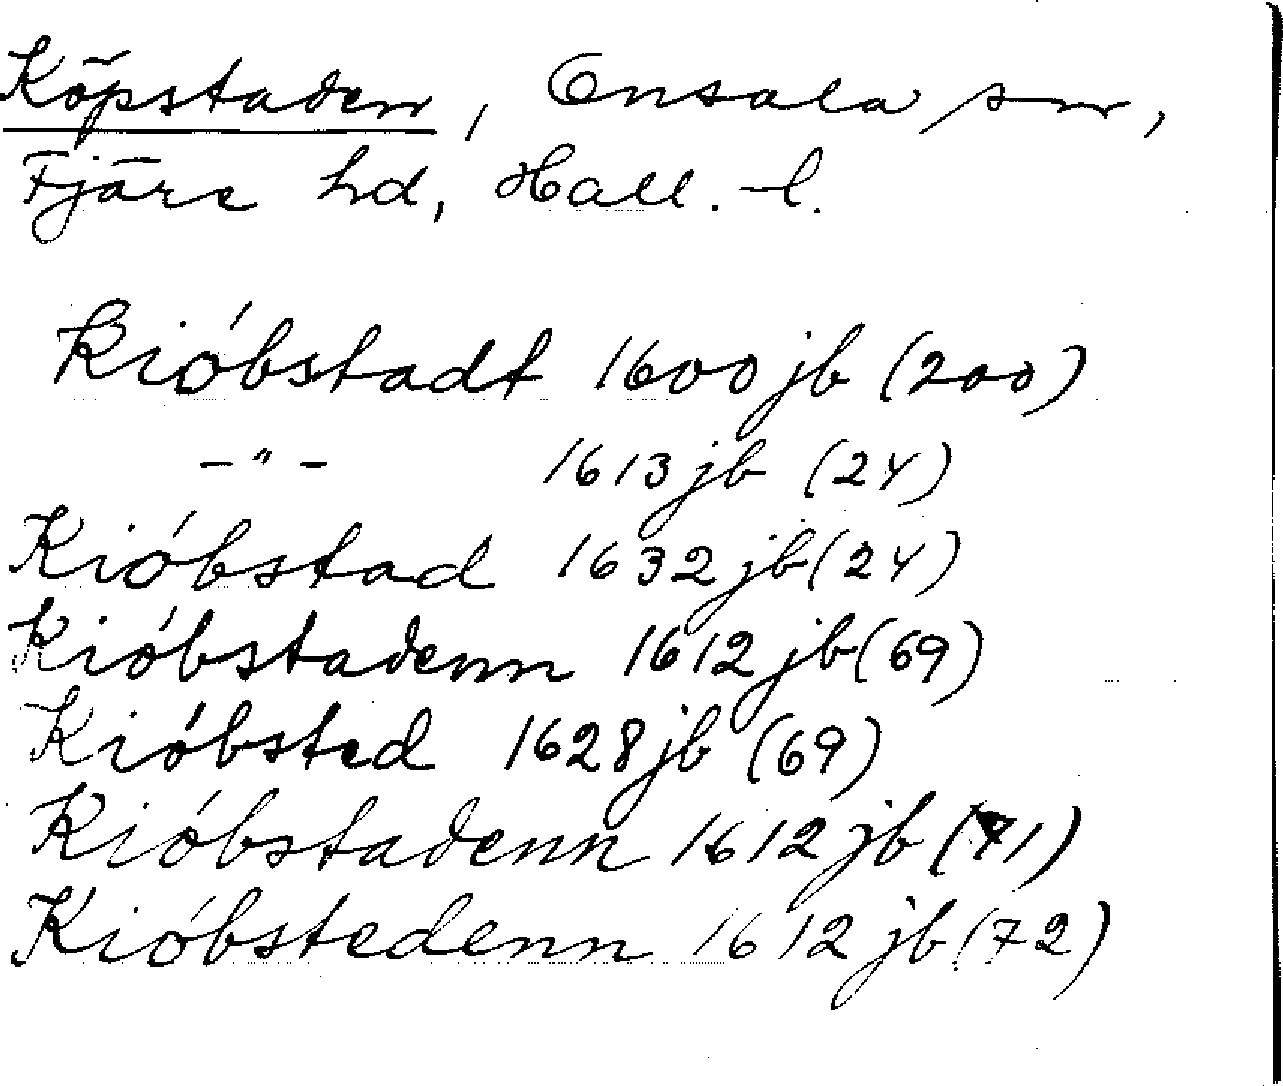 Köpstaden, Onsala sn,
Fjäre hd, Hall. l.
Kióbstadt 1600 jb (200)
–"– 1613 jb (24)
Kióbstad 1632 jb (24)
Kióbstadenn 1612 jb (69)
Kióbsted 1628 jb (69)
Kióbstadenn 1612 jb (71)
Kióbstedenn 1612 jb (72)